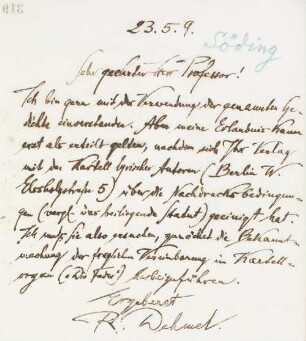 23.5.9.
Söding
Sehr geehrter Herr Professor!
Ich bin gern mit der Verwendung der genannten Ge-
dichte einverstanden. Aber meine Erlaubnis kann
erst als erteilt gelten, nachdem sich Ihr Verlag
mit dem Kartell lyrischer Autoren (Berlin W.
Elssholzstraße 5) über die Nachdrucksbedingun-
gen (vergl. das beiliegende Statut) geeinigt hat.
Ich muß Sie also ersuchen, zunächst die Bekannt-
machung der fraglichen Vereinbarung im Kartell-
organ ("Die Feder") herbeizuführen.
Ergebenst
R. Dehmel.